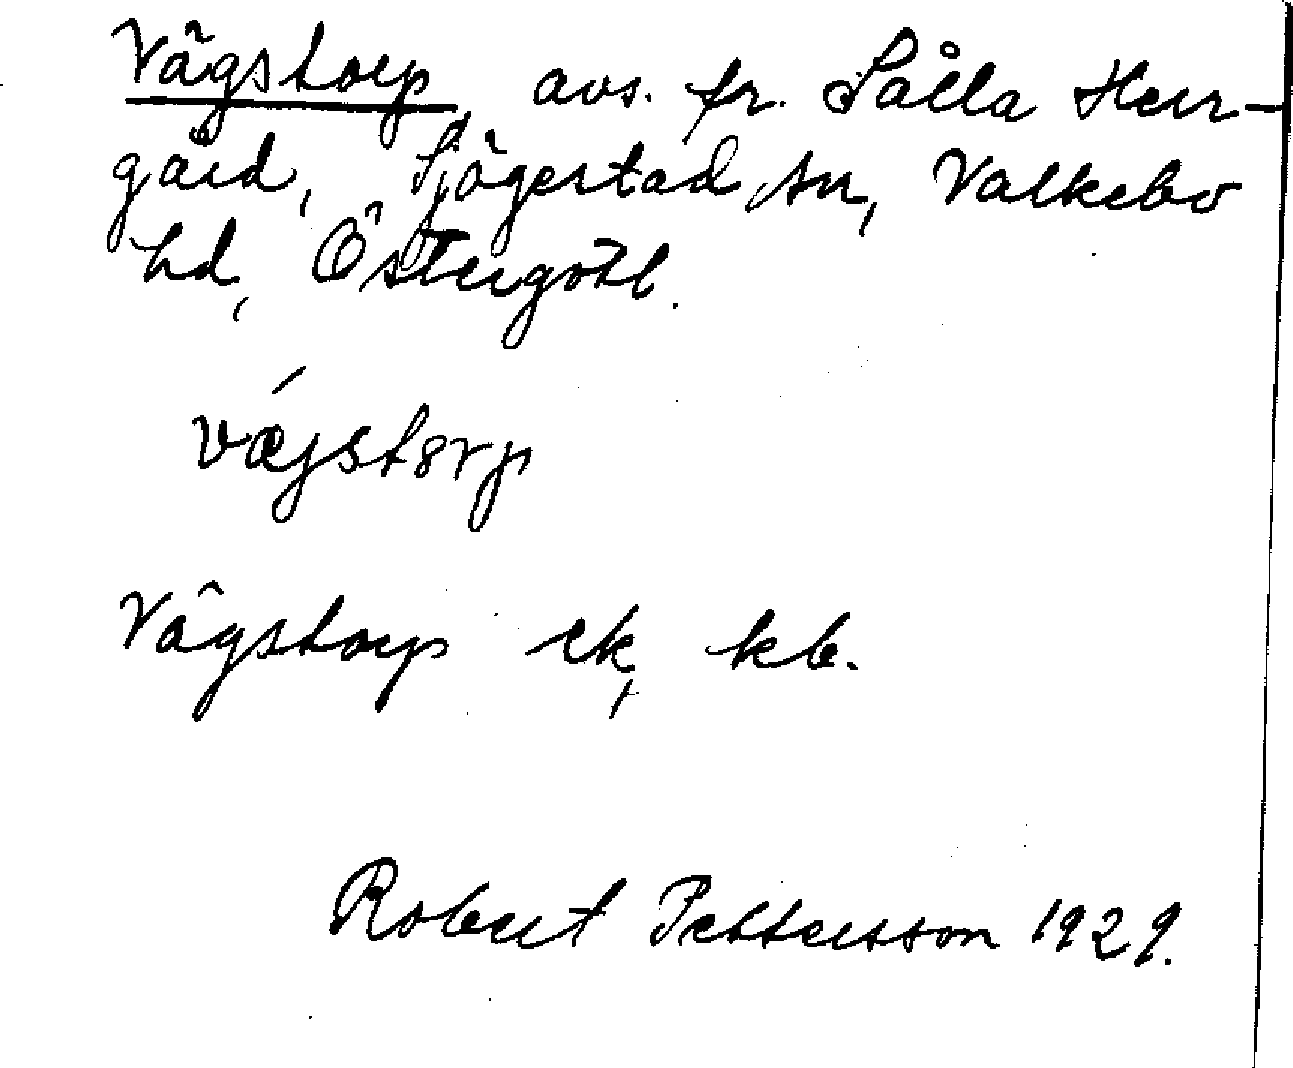 Vägstorp, avs. fr. Sålla Herr-
gård, Sjögestad sn, Valkebo
hd, Östergötl.
vǽjstorp
Vägstorp ek, kb.
Robert Pettersson 1929.